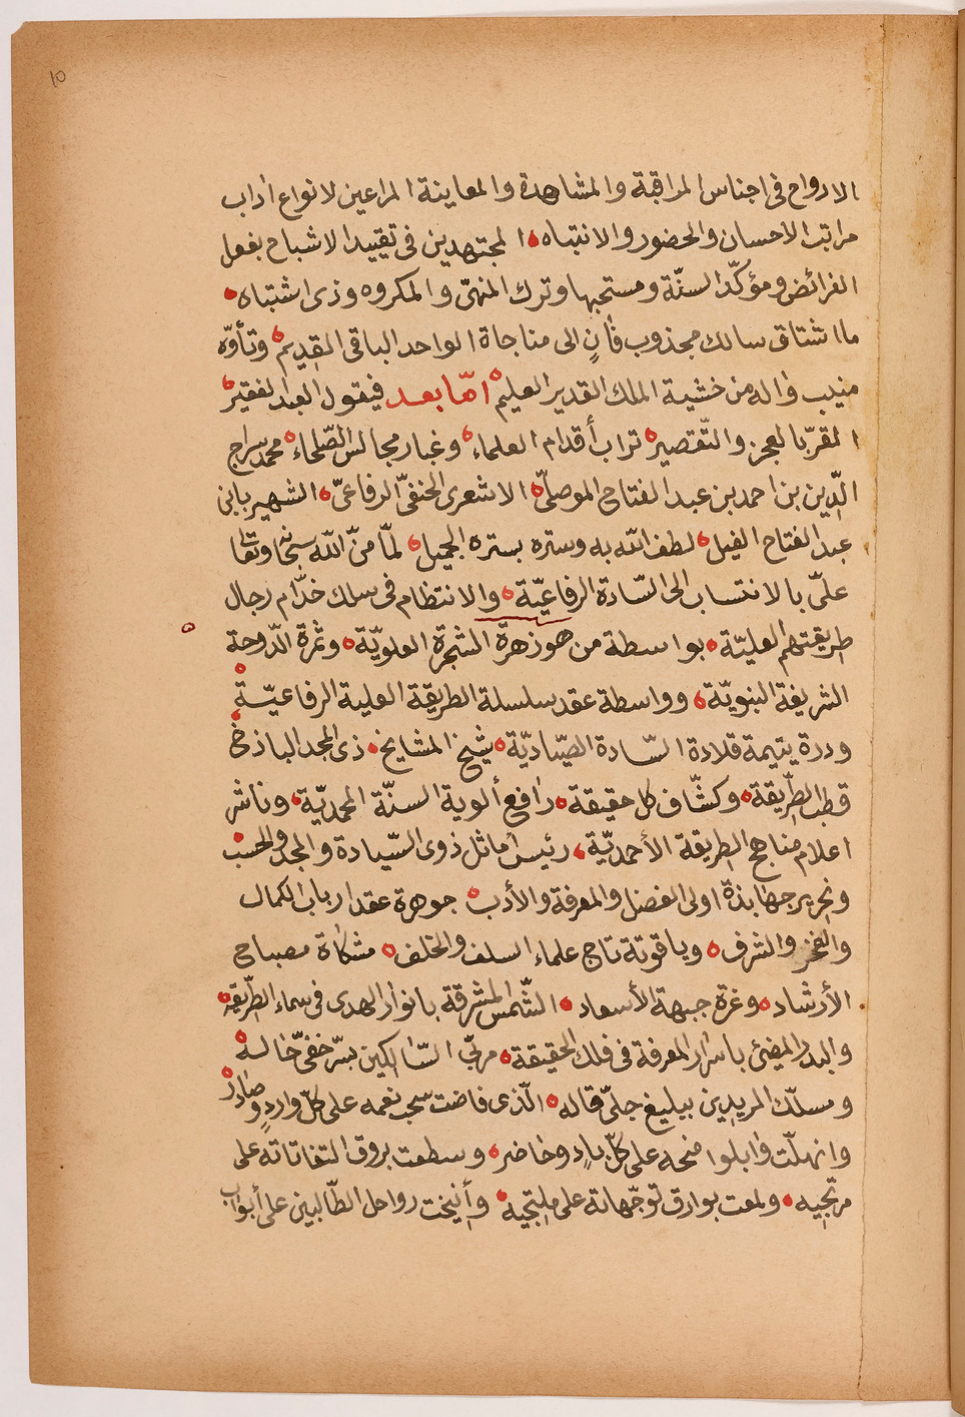 ١٥
الارواح فى اجناس المراقبة والمشاهدة والمعاينة المراعين لانواع اداب
مراتب الاحسان والحضور والانتباه المجتهدين فى تقييد الاشباح بفعل
الفرائض ومؤكدّ السنّة ومستحبها وترك المنهىّ والمكروه وذى اشتباه
ما اشتاق سالك مجذوب فانٍ الى مناجاة الواحد الباقى القديم وتأوّه
منيب واله من خشية الملك القدير العليم امّا بعد فيقول العبد الفقير
المقرّ بالعجز والتّقصير تراب أقدام العلماء وغبار مجالس الصّلحاء محمد سراج
الدّين بن احمد بن عبد الفتاح الموصلىّ الاشعرى الحنفىّ الرفاعىّ الشهير بابن
عبد الفتاح الفيل لطف الله به وستره بستره الجميل لمّا منّ الله سبحٰنه وتعٰا
علىّ بالانتساب الى السّادة الرفاعيّة والانتظام فى سلك خدّام رجال
طريقتهم العليّة بواسطة من هو زهرة الشجرة العلويّة وثمرة الدّوحة
الشريفة النبويّة وواسطة عقد سلسلة الطريقة العلية الرفاعيّة
ودرة يتيمة قلادة السّادة الصّياديّة شيخ المشايخ ذى المجد الباذخ
قطب الطّريقة وكشّاف كل حقيقة رافع ألوية السنّة المحمديّة وناشر
اعلام مناهج الطريقة الأحمديّة رئيس اماثل ذوى السّيادة والمجد والحسب
ونحرير جهابذة اولى الفضل والمعرفة والأدب جوهرة عقد ارباب الكمال
والفخر والشرف وياقوتة تاج علماء السلف والخلف مشكاة مصباح
الأرشاد وغرة جبهة الأسعاد الشّمس المشرقة بانوار الهدى فى سماء الطّريقة
والبدر المضئ باسرار المعرفة فى فلك الحقيقة مربّى السّالكين بسّر خفىّ حاله
ومسلّك المريدين ببليغ جلىّ قاله الّذى فاضت سحب نعمه على كلّ واردٍ وصادر
وانهلّت وابلوا منحه على كلّ بادٍ وحاضر وسطعت بروق التفاتاته على
مرتجيه ولمعت بوارق توجّهاته على ملتجيه وأنيخت رواحل الطّالبين على أبواب